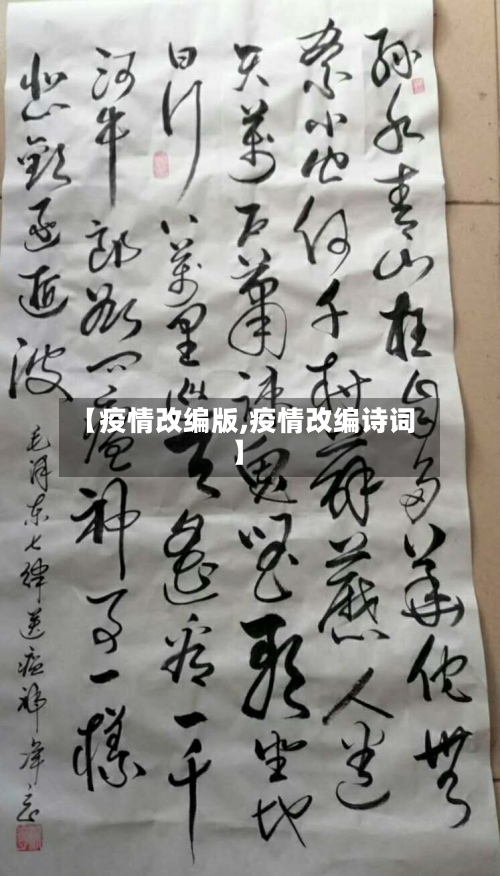 綠水青山枉自多華佗無
奈小虫何千村薜藶人遺
矢萬户蕭疎鬼唱歌坐地
日行八萬里巡天遙看一千
河牛郎欲问瘟神事一樣
悲歡逐逝波
毛泽东七律送瘟神
【疫情改编版,疫情改编诗词
】